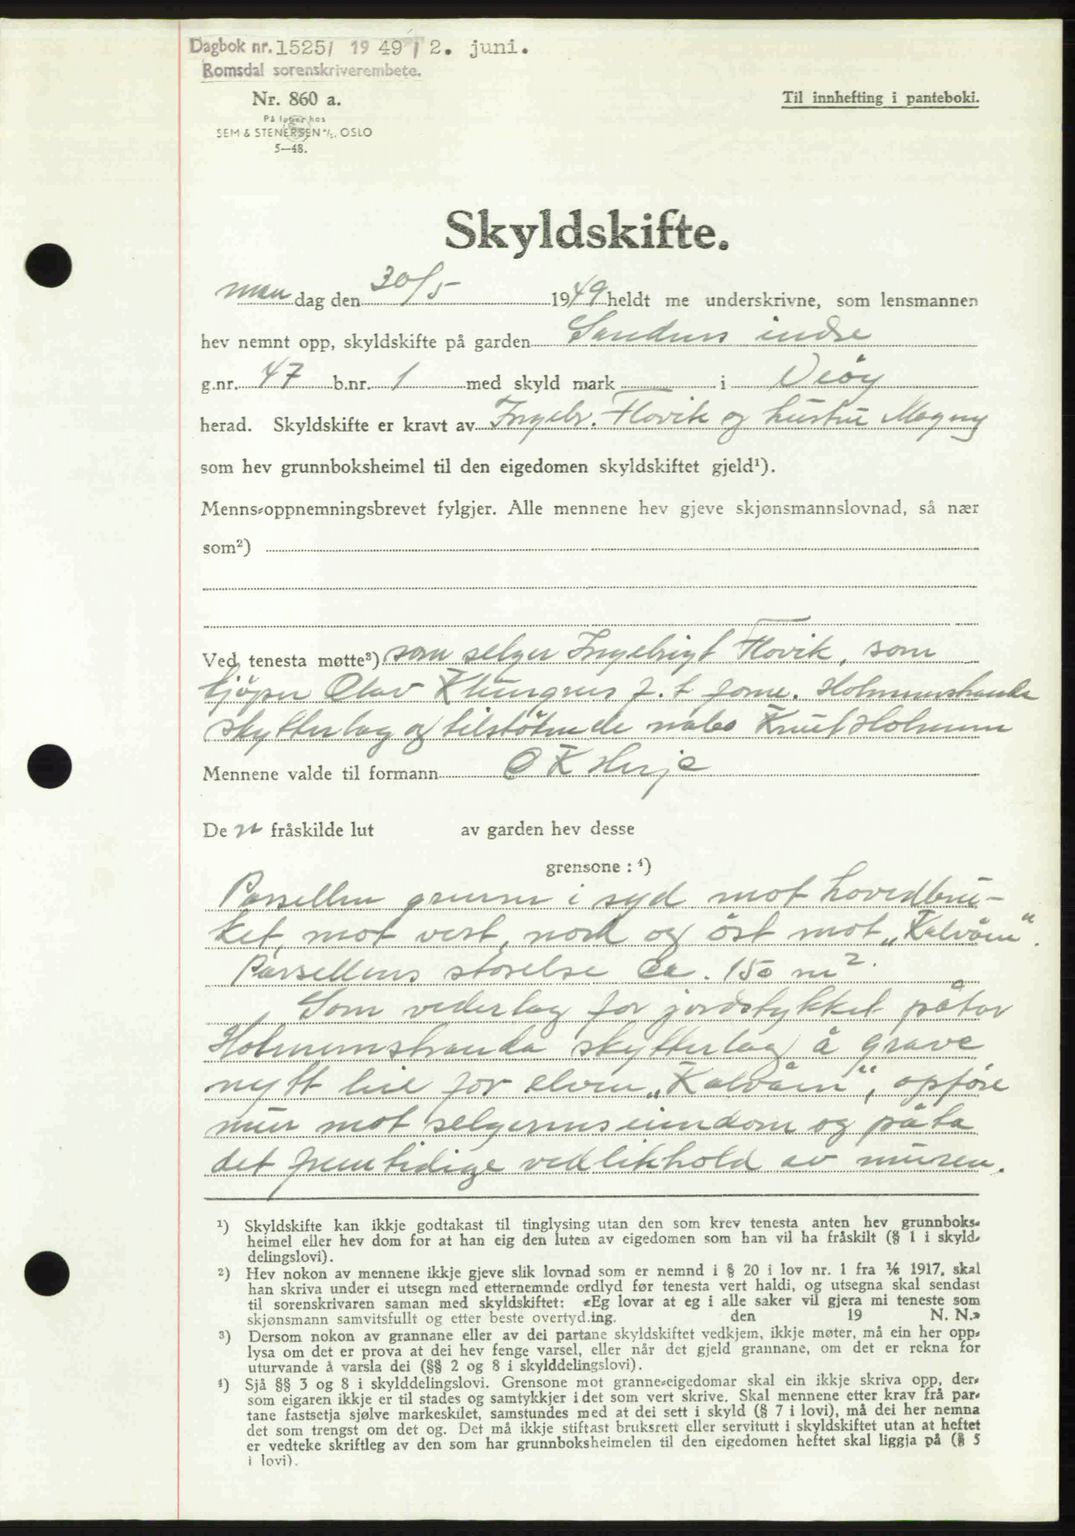 Dagbok nr. 1525/ 1949 / 2. juni.
Romsdal sorenskriverembete.
Nr. 860 a.
På lager hos
SEM & STENERSEN A/S, OSLO
5—48.
Til innhefting i panteboki.
Skyldskifte.
man dag den 30/5 1949 heldt me underskrivne, som lensmannen
hev nemnt opp, skyldskifte på garden Sandnes indre
g.nr. 47 b.nr. 1 med skyld mark i Veöy
herad. Skyldskifte er kravt av Ingebr. Flovik og hustru Magny
som hev grunnboksheimel til den eigedomen skyldskiftet gjeld¹).
Menns-oppnemningsbrevet fylgjer. Alle mennene hev gjeve skjønsmannslovnad, så nær
som²)
Ved tenesta møtte³) som selger Ingebrigt Flovik, som
kjöper Olav Klungnes f. t. form. Holmemstranda
skytterlag og tilstötende nabo Knut Holmem
Mennene valde til formann O K Herje
De n fråskilde lut av garden hev desse
grensone : ⁴)
Parsellen grenser i syd mot hovedbru-
ket, mot vest, nord og öst mot „Kalvåen“.
Parsellens störelse ca. 150 m².
Som vederlag for jordstykket påtar
Holmemstranda skytterlag å grave
nytt leie for elven „Kalvåen“, opföre
mur mot selgerens eiendom og påta
det fremtidige vedlikhold av muren.
¹) Skyldskifte kan ikkje godtakast til tinglysing utan den som krev tenesta anten hev grunnboks-
heimel eller hev dom for at han eig den luten av eigedomen som han vil ha fråskilt (§ 1 i skyld-
delingslovi).
²) Hev nokon av mennene ikkje gjeve slik lovnad som er nemnd i § 20 i lov nr. 1 fra ⅙ 1917, skal
han skriva under ei utsegn med etternemnde ordlyd før tenesta vert haldi, og utsegna skal sendast
til sorenskrivaren saman med skyldskiftet: «Eg lovar at eg i alle saker vil gjera mi teneste som
skjønsmann samvitsfullt og etter beste overtyding. den 19 N. N.»
³) Dersom nokon av grannane eller av dei partane skyldskiftet vedkjem, ikkje møter, må ein her opp-
lysa om det er prova at dei hev fenge varsel, eller når det gjeld grannane, om det er rekna for
uturvande å varsla dei (§§ 2 og 8 i skylddelingslovi).
⁴) Sjå §§ 3 og 8 i skylddelingslovi. Grensone mot granne-eigedomar skal ein ikkje skriva opp, der-
som eigaren ikkje er til stades og samtykkjer i det som vert skrive. Skal mennene etter krav frå par-
tane fastsetja sjølve markeskilet, samstundes med at dei sett i skyld (§ 7 i lovi), må dei her nemna
det som trengst om det og. Det må ikkje stiftast bruksrett eller servitutt i skyldskiftet utan at heftet
er vedteke skriftleg av den som har grunnboksheimelen til den eigedomen heftet skal liggja på (§ 5
i lovi).